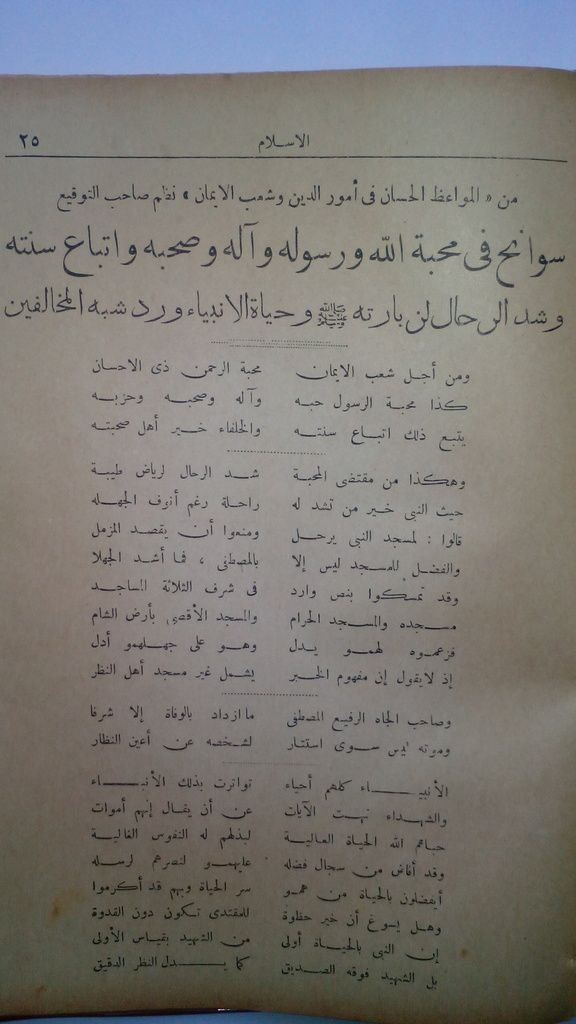 الاسلام ٢٥
من « المواعظ الحسان فى أمور الدين وشعب الايمان » نظم صاحب التوقيع
سوانح فى محبة الله ورسوله وآله وصحبه واتباع سنته
وشد الرحال لزيارته ﷺ وحياة الانبياء ورد شبه المخالفين
ومن أجل شعب الايمان محبة الرحمن ذى الاحسان
كذا محبة الرسول حبه وآله وصحبه وحزبه
يتبع ذلك اتباع سنته والخلفاء خير أهل صحبته
وهكذا من مقتضى المحبة شد الرحال لرياض طيبة
حيث النبى خير من تشد له راحلة رغم أنوف الجهله
قالوا : لمسجد النبى يرحل ومنعوا أن يقصد المزمل
والفضل للمسجد ليس إلا بالمصطفى ، فما أشد الجهلا
وقد تمسكوا بنص وارد فى شرف الثلاثة المساجد
مسجده والمسجد الحرام والمسجد الأقصى بأرض الشام
فزعموه لهمو يدل وهو على جهلهمو أدل
إذ لا يقول إن مفهوم الخبر يشمل غير مسجد أهل النظر
وصاحب الجاه الرفيع المصطفى ما ازداد بالوفاة إلا شرفا
وموته ليس سوى استتار لشخصه عن أعين النظار
الأنبياء كلهم أحياء تواترت بذلك الأنباء
والشهداء نهت الآيات عن أن يقال إنهم أموات
حباهم الله الحياة العالية لبذلهم له النفوس الغالية
وقد أفاض من سجال فضله عليهمو لنصرهم لرسله
أيفضلون بالحياة من همو سر الحياة وبهم قد أكرموا
وهل يسوغ أن خير حظوة للمقتدى تكون دون القدوة
إن النبى بالحياة أولى من الشهيد بقياس الأولى
بل الشهيد فوقه الصديق كما يدل النظر الدقيق